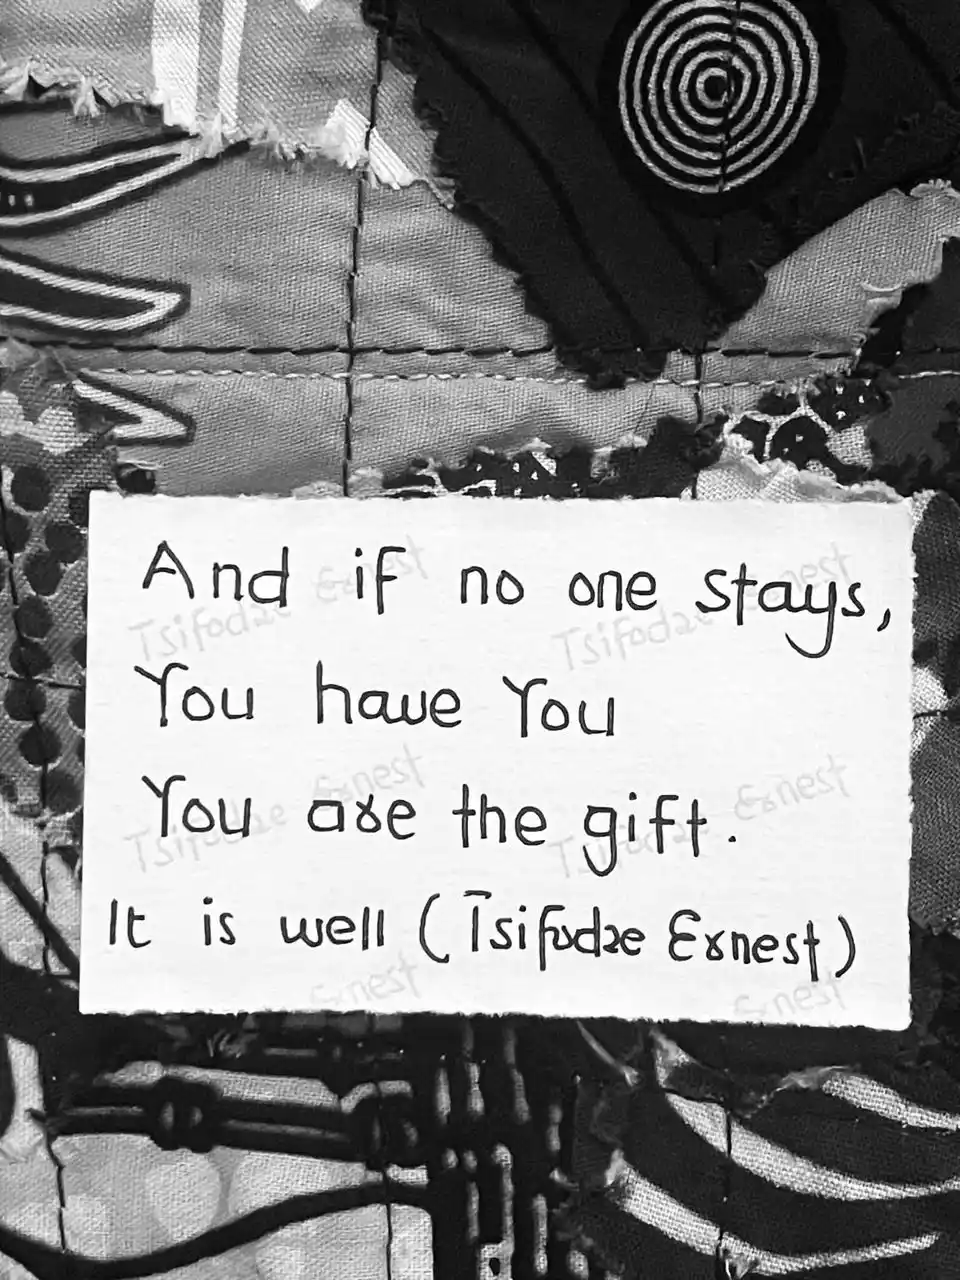 And if no one stays,
You have You
You are the gift.
It is well (Tsifodze Ernest)
Tsifodze Ernest
Tsifodze Ernest
Tsifodze Ernest
Tsifodze Ernest
Ernest
Ernest